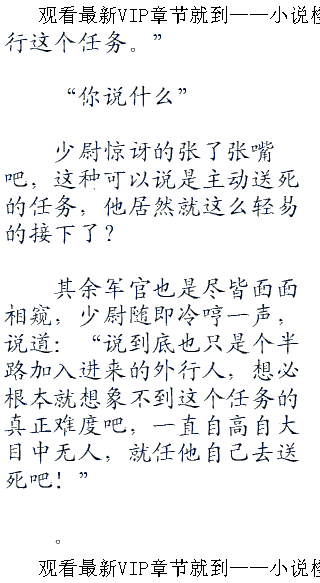 观看最新VIP章节就到——小说
行这个任务。”
“你说什么”
少尉惊讶的张了张嘴
吧，这种可以说是主动送死
的任务，他居然就这么轻易
的接下了？
其余军官也是尽皆面面
相窥，少尉随即冷哼一声，
说道：“说到底也只是个半
路加入进来的外行人，想必
根本就想象不到这个任务的
真正难度吧，一直自高自大
目中无人，就任他自己去送
死吧！”
。
观看最新VIP章节就到——小说